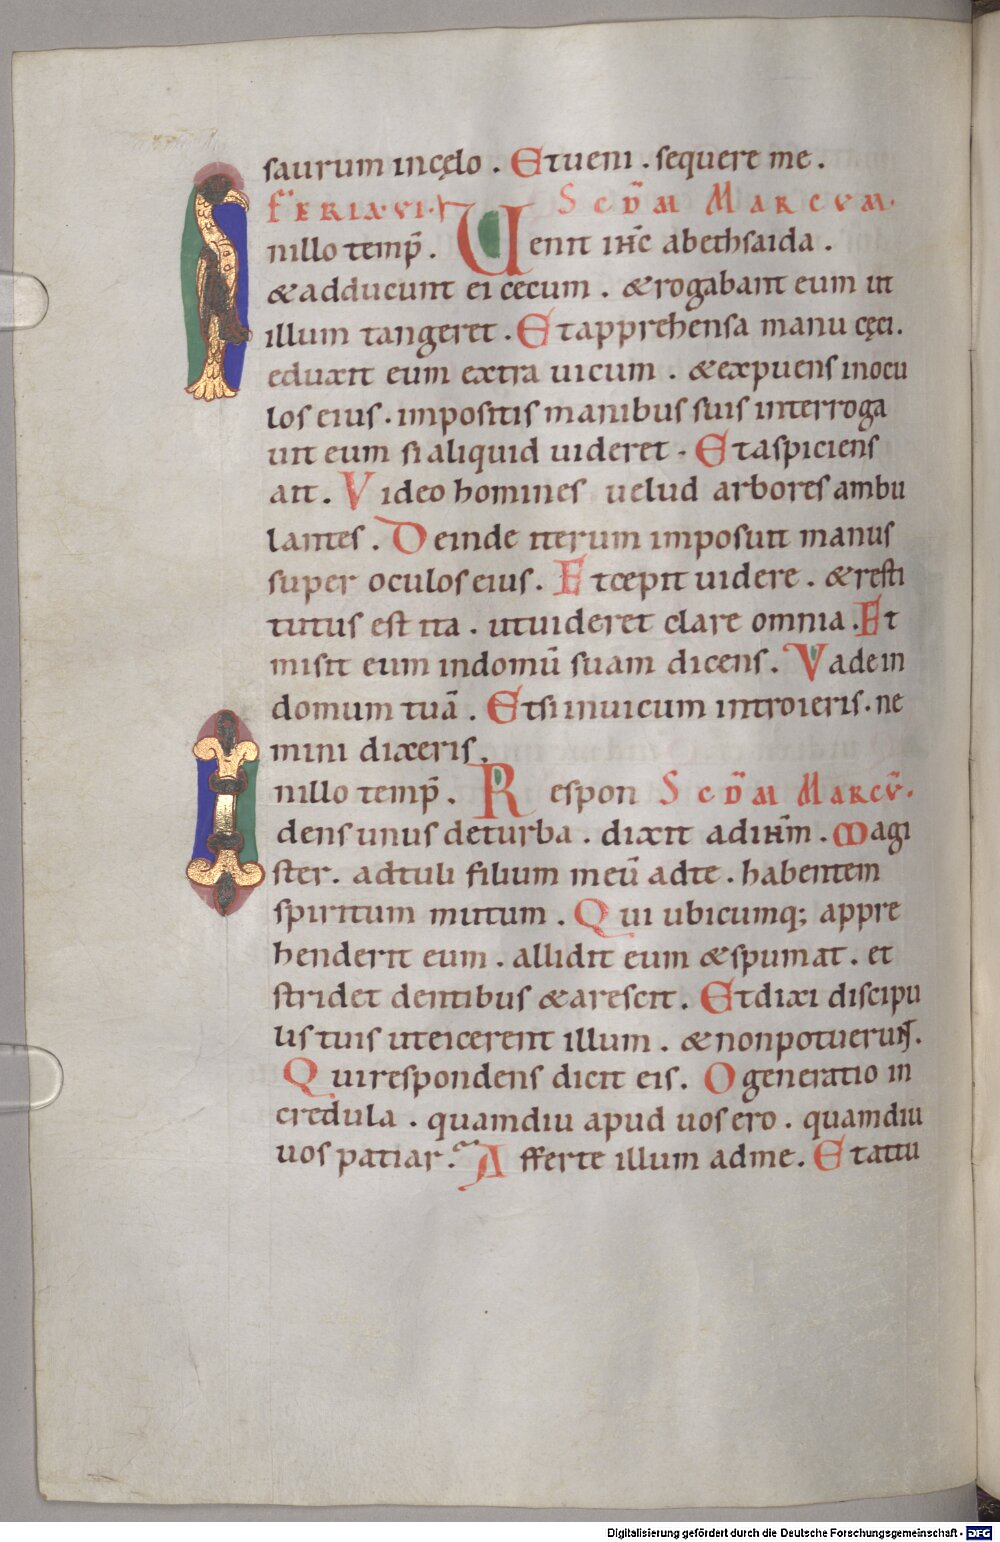 saurum incęlo . Etueni . sequere me .
FERIA·VI· SCD̄M MARCVM·
Inillo temp̄ . Uenit ih̄c abethsaida .
&adducunt ei cecum . &rogabant eum ut
illum tangeret . Etapprehensa manu cęci .
eduxit eum extra uicum . &expuens inocu
los eius . impositis manibus suis interroga
uit eum si aliquid uideret . Etaspiciens
ait . Video homines uelud arbores ambu
lantes . Deinde iterum imposuit manus
super oculos eius . Etcepit uidere . &resti
tutus est ita . utuideret clare omnia . Et
misit eum indomū suam dicens . Vadein
domum tuā . Etsi inuicum introieris . ne
mini dixeris .
Inillo temp̄ . Respon SCD̄M MARCV̄·
dens unus deturba . dixit adih̄m . Magi
ster . adtuli filium meū adte . habentem
spiritum mutum . Qui ubicumq; appre
henderit eum . allidit eum &spumat . et
stridet dentibus &arescit . Etdixi discipu
lis tuis uteicerent illum . &nonpotuerunt .
Quirespondens dicit eis . O generatio in
credula . quamdiu apud uos ero . quamdiu
uos patiar . Afferte illum adme . Etattu
Digitalisierung gefördert durch die Deutsche Forschungsgemeinschaft - DFG